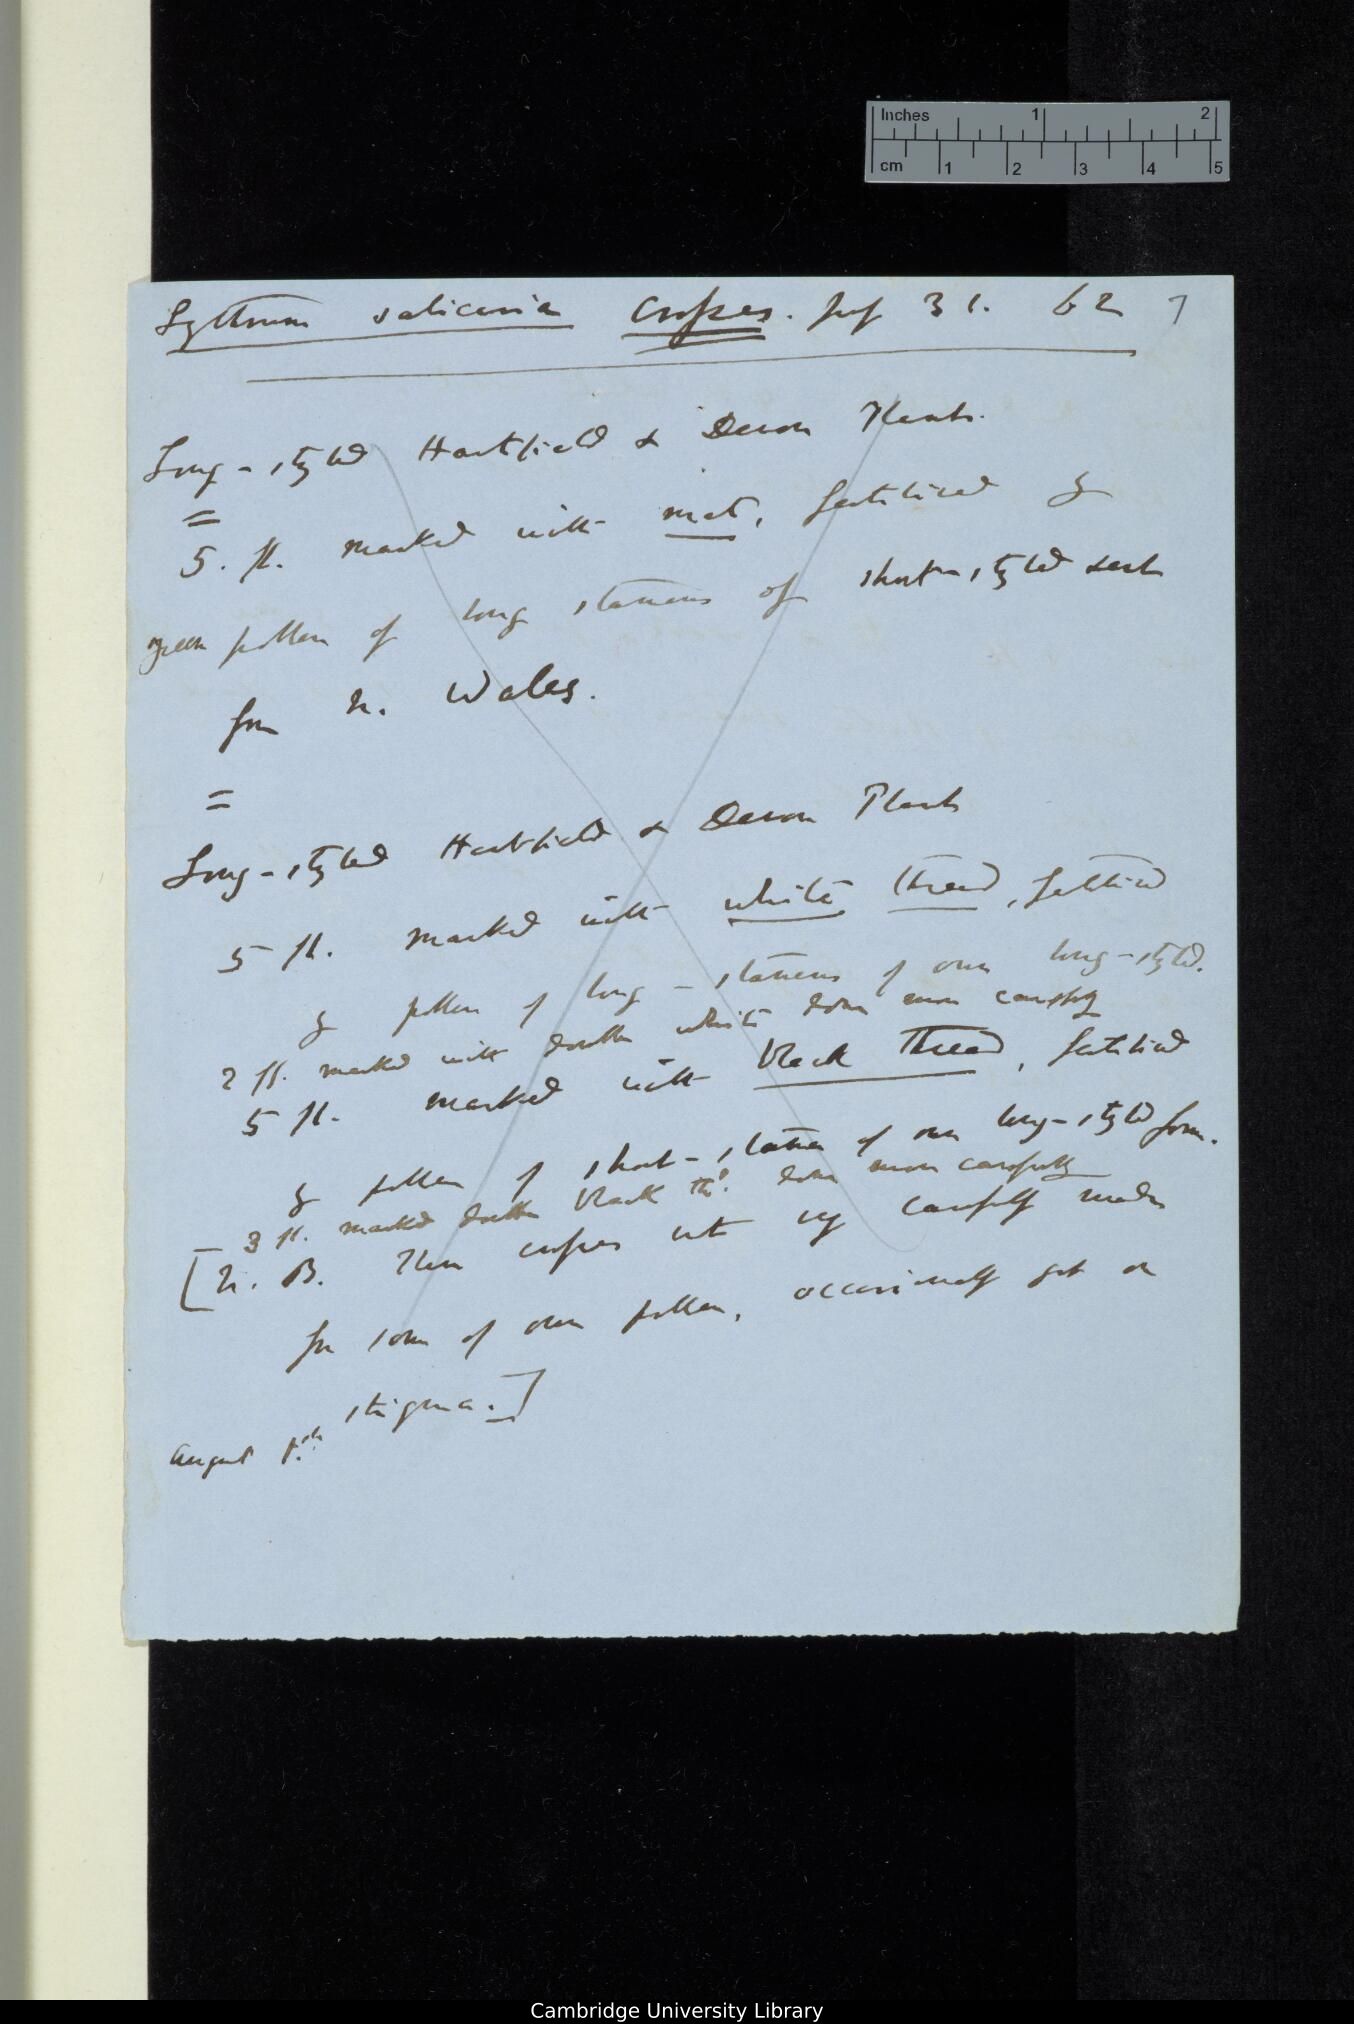 Inches 1 2
cm 1 2 3 4 5
Lythrum salicaria Crosses. July 31. 62 7
Long-styled Hartfield & Devon Plants.
=
5. fl. marked with mat, fertilised by
green pollen of long stamens of short-styled sent
from N. Wales.
=
Long-styled Hartfield & Devon Plants
5 fl. marked with white thread, fertilised
by pollen of long-stamens of own long-styled.
2 fl. marked with double white done more carefully
5 fl. marked with black thread, fertilised
by pollen of short-stamens of own long-styled form.
3 fl. marked double black thd. done more carefully
[N. B. These crosses not very carefully made
for some of own pollen, occasionally got on
stigma.]
August
Cambridge University Library